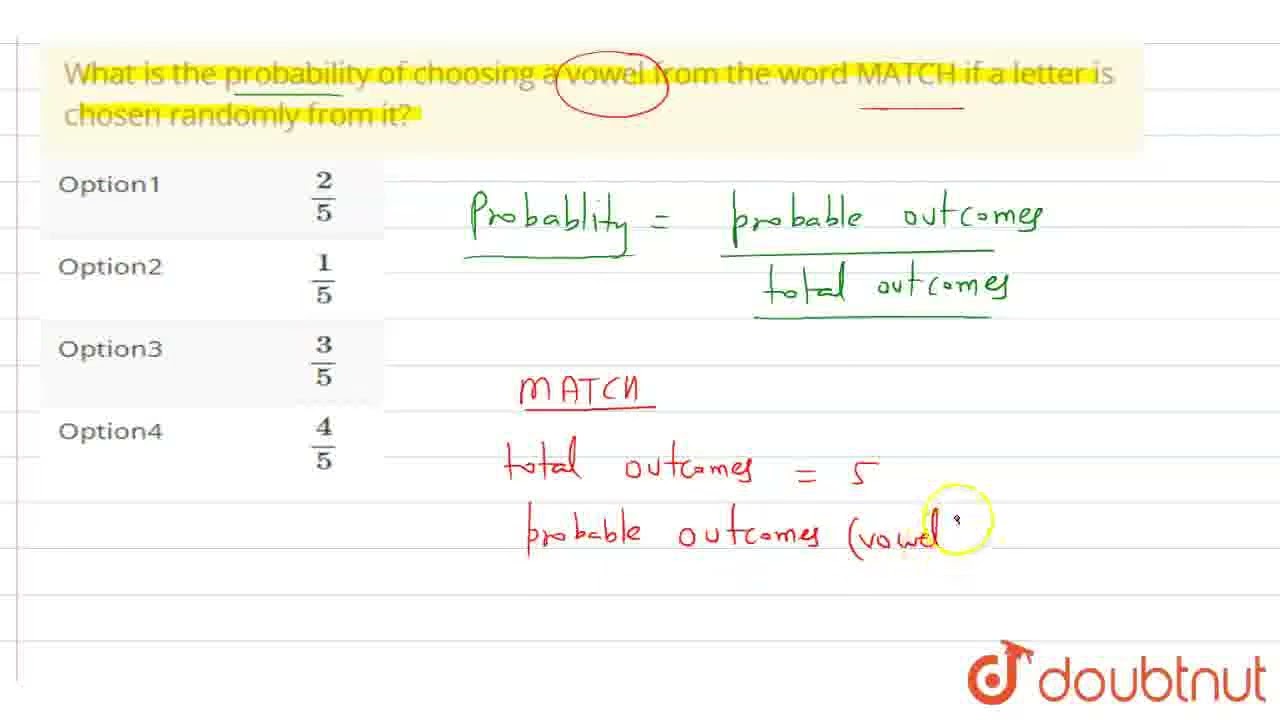 What is the probability of choosing a vowel from the word MATCH if a letter is
chosen randomly from it?
Option1 2/5
Option2 1/5
Option3 3/5
Option4 4/5
Probablity = probable outcomes
total outcomes
MATCH
total outcomes = 5
probable outcomes (vowel
doubtnut